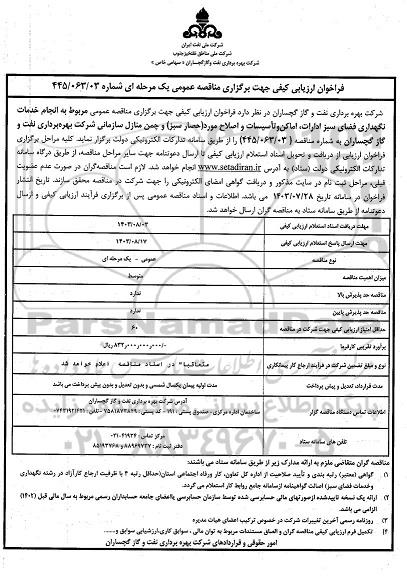 شرکت ملی نفت ایران
شرکت ملی مناطق نفتخیز جنوب
شرکت بهره برداری نفت و گاز گچساران « سهامی خاص »
فراخوان ارزیابی کیفی جهت برگزاری مناقصه عمومی یک مرحله ای شماره ۴۴۵/۰۶۳/۰۳
شرکت بهره برداری نفت و گاز گچساران در نظر دارد فراخوان ارزیابی کیفی جهت برگزاری مناقصه عمومی مربوط به انجام خدمات
نگهداری فضای سبز ادارات، اماکن وتأسیسات و اصلاح مورد(حصار سبز) و چمن منازل سازمانی شرکت بهره‌برداری نفت و
گاز گچساران به شماره مناقصه ( ۴۴۵/۰۶۳/۰۳) را از طریق سامانه تدارکات الکترونیکی دولت برگزار نماید. کلیه مراحل برگزاری
فراخوان ارزیابی از دریافت و تحویل اسناد استعلام ارزیابی کیفی تا ارسال دعوتنامه جهت سایر مراحل مناقصه، از طریق درگاه سامانه
تدارکات الکترونیکی دولت (ستاد) به آدرس www.setadiran.ir انجام خواهد شد. لازم است مناقصه‌گران در صورت عدم عضویت
قبلی، مراحل ثبت نام در سایت مذکور و دریافت گواهی امضای الکترونیکی را جهت شرکت در مناقصه محقق سازند. تاریخ انتشار
فراخوان در سامانه تاریخ ۱۴۰۳/۰۷/۲۸ می باشد. اطلاعات و اسناد مناقصه عمومی پس از برگزاری فرآیند ارزیابی کیفی و ارسال
دعوتنامه از طریق سامانه ستاد به مناقصه گران ارسال خواهد شد.
مهلت دریافت اسناد استعلام ارزیابی کیفی ۱۴۰۳/۰۸/۰۳
مهلت ارسال پاسخ استعلام ارزیابی کیفی ۱۴۰۳/۰۸/۱۷
نوع مناقصه عمومی - یک مرحله ای
میزان اهمیت مناقصه متوسط
مناقصه حد پذیرش بالا ندارد
مناقصه حد پذیرش پایین ندارد
حداقل امتیاز ارزیابی کیفی جهت شرکت در مناقصه ۶۰
برآورد تقریبی کارفرما
نوع و مبلغ تضمین شرکت در فرآیند ارجاع کار پیمانکاری متعاقبا" در اسناد مناقصه اعلام خواهد شد
مدت قرارداد، تعدیل و پیش پرداخت مدت اولیه پیمان یکسال شمسی و بدون تعدیل و بدون پیش پرداخت می باشد
اطلاعات تماس دستگاه مناقصه گزار آدرس شرکت بهره برداری نفت و گاز گچساران
ساختمان اداره مرکزی، صندوق پستی : ۱۹۱ - کد پستی :
تلفن های سامانه ستاد مرکز تماس: ۰۲۱-۴۱۹۳۴
دفتر ثبت نام : ۸۸۹۶۹۷۳۷ و ۸۵۱۹۳۷۶۸
مناقصه گران متقاضی ملزم به ارائه مدارک زیر از طریق سامانه ستاد می باشند:
۱) گواهی (معتبر) رتبه بندی و تأیید صلاحیت از اداره کل تعاون، کار ورفاه اجتماعی استان(حداقل رتبه ۴ با ظرفیت ارجاع کارآزاد در رشته نگهداری
وخدمات فضای سبز) اصالت گواهینامه ازسامانه جامع روابط کار استعلام می گردد.
۲) ارائه یک نسخه تاییدشده ازصورتهای مالی حسابرسی شده توسط سازمان حسابرسی یااعضای جامعه حسابداران رسمی مربوط به سال مالی قبل (۱۴۰۲)
الزامی می باشد.
۳) روزنامه رسمی آخرین تغییرات شرکت در خصوص ترکیب اعضای هیات مدیره
۴) تکمیل فرم ارزیابی کیفی مناقصه گران و الصاق مستندات مربوط به توان مالی ، سوابق کاری،ارزشیابی سوابق و.......
امور حقوقی و قراردادهای شرکت بهره برداری نفت و گاز گچساران